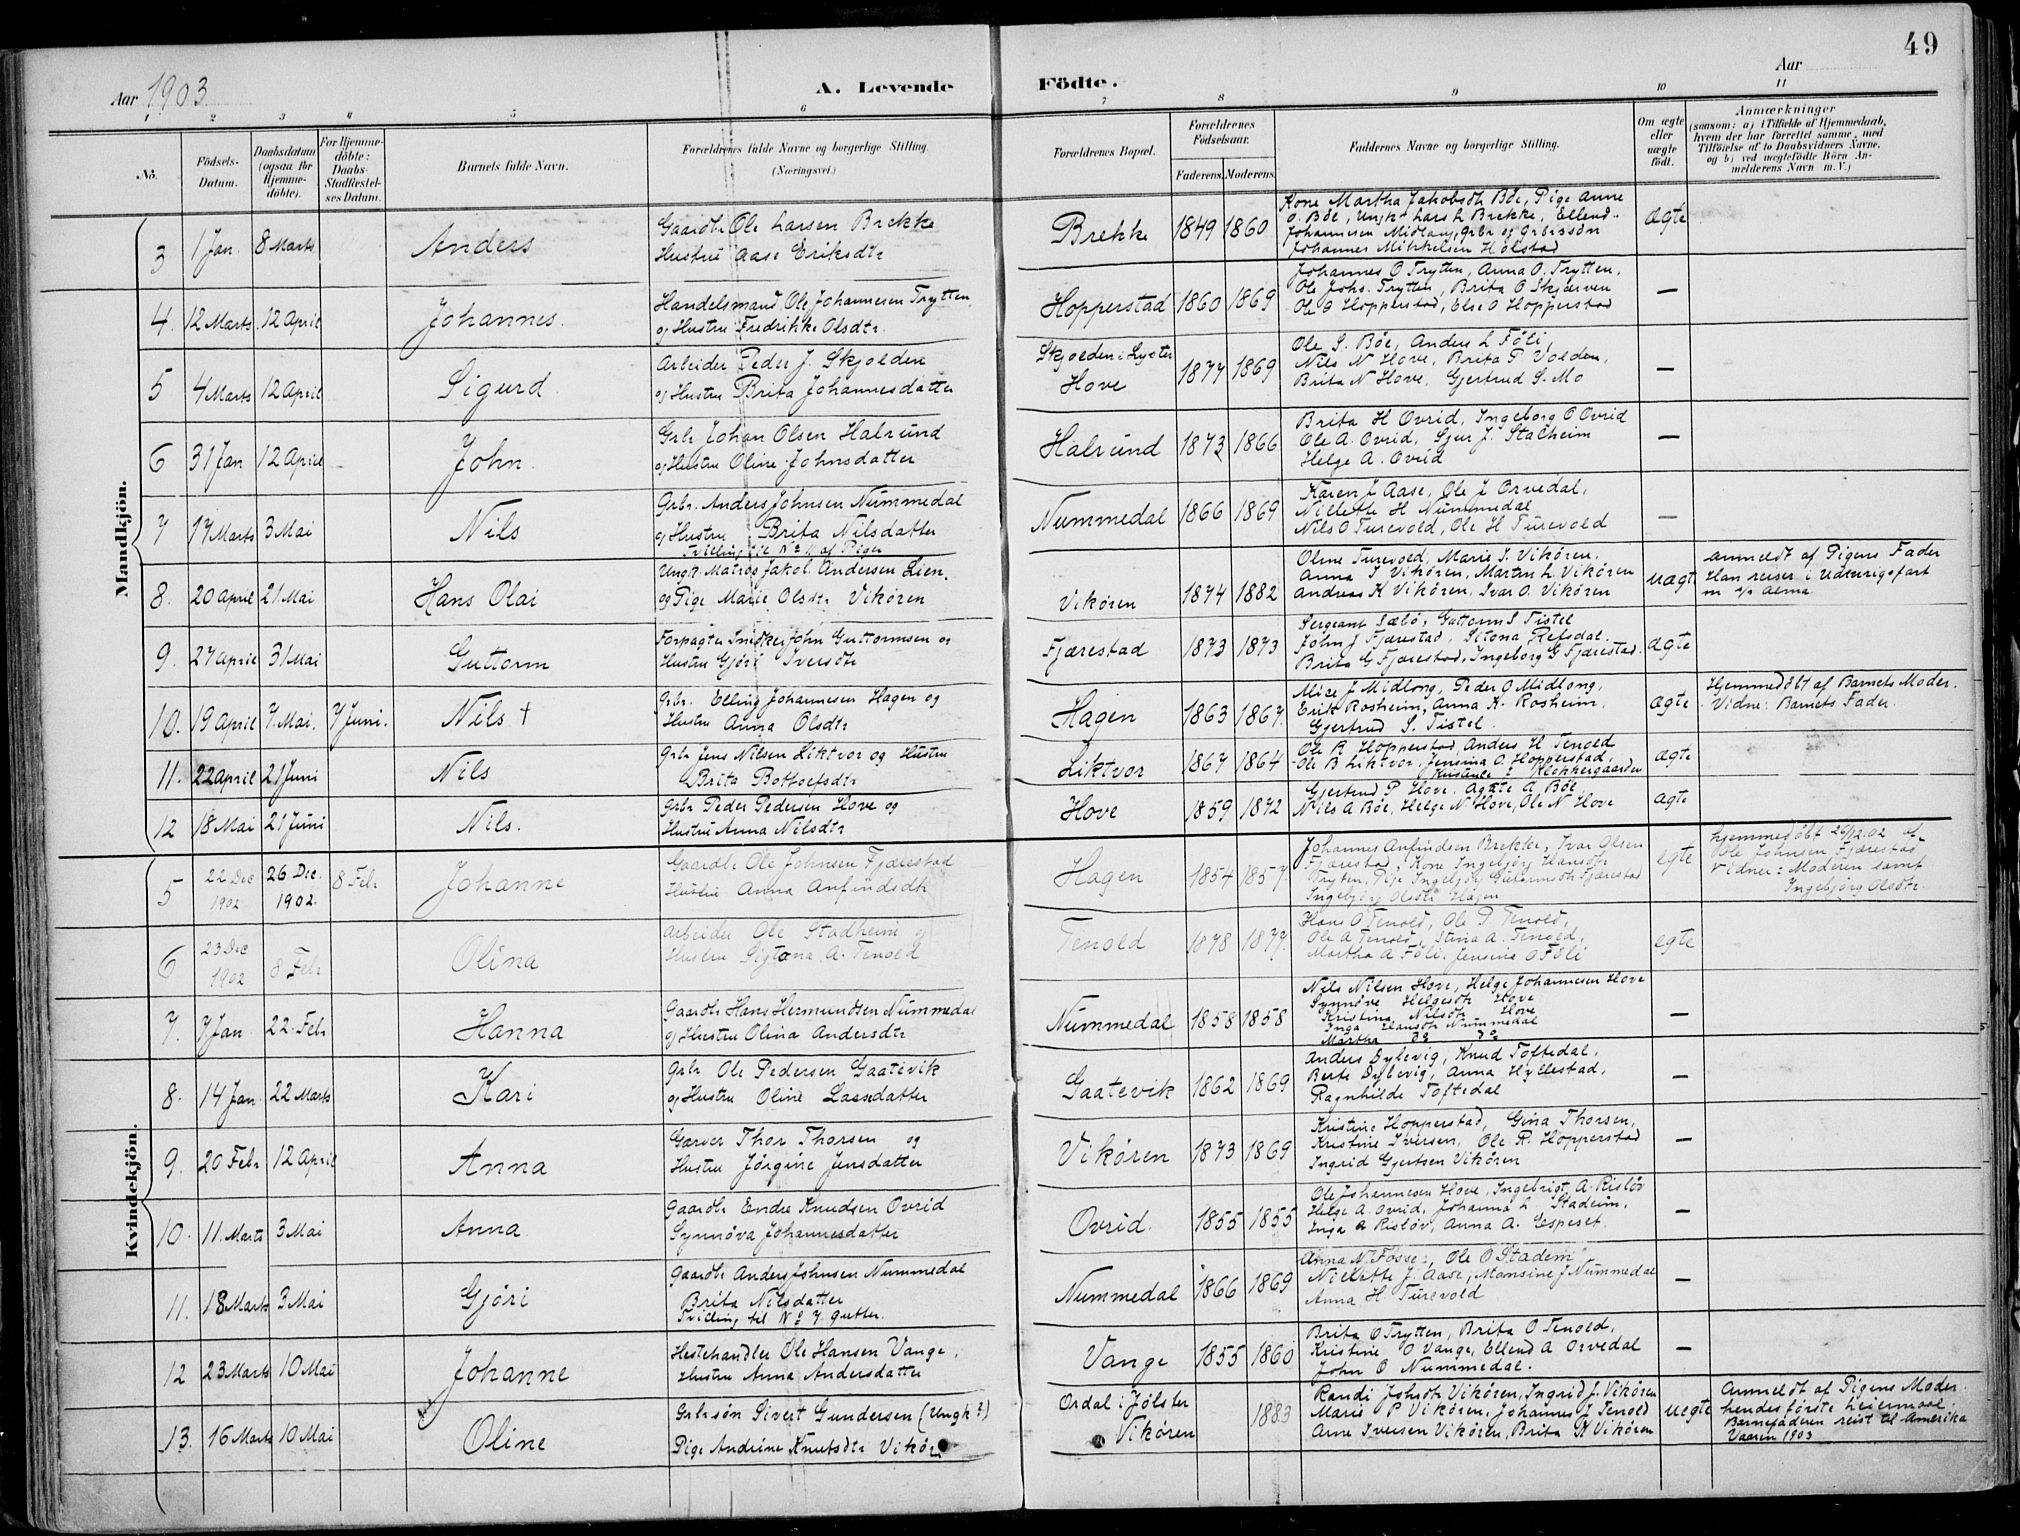 49
Aar 1903
A. Levende Födte.
Aar
1 2 3 4 5 6 7 8 9 10 11
No.
Födsels-Datum.
Daabsdatum (ogsaa for Hjemmedöbte).
For Hjemmedöbte: Daabs-Stadfæstelses Datum.
Barnets fulde Navn.
Forældrenes fulde Navne og borgerlige Stilling. (Næringsvei.)
Forældrenes Bopæl.
Forældrenes Födselsaar.
Faderens. Moderens.
Faddernes Navne og borgerlige Stilling.
Om ægte eller uægte födt.
Anmærkninger
(saasom: a) i Tilfælde af Hjemmedaab, hvem der har forrettet samme, med Tilföielse af to Daabsvidners Navne, og b) ved uægtefödte Börn Anmelderens Navn m. V.)
Mandkjön.
3 1 Jan. 8 Marts Anders
Gaardbr Ole Larsen Brekke
Hustru Aase Eriksdtr
Brekke 1849 1860
Kone Martha Jakobsdtr Böe, Pige Anne
O. Böe, Ungk. Lars L Brekke, Ellend
Johannesen Midlang, Grbr og Grbrssön
Johannes Mikkelsen Holstad
ægte
4. 12 Marts 12 April Johannes.
Handelsmand Ole Johannesen Trytten
og Hustru Fredrikke Olsdtr.
Hopperstad 1860 1869
Johannes O Trytten, Anna O. Trytten,
Ole Johs. Trytten, Brita O Skjærven
Ole O Hopperstad, Else O Hopperstad
—
5 4 Marts 12 April Sigurd
Arbeider Peder J. Skjolden
og Hustru Brita Johannesdatter
Skjolden i Lyster
Hove 1877 1869
Ole S. Böe, Anders L Föli,
Nils N Hove, Brita P Volden,
Brita N Hove, Gjertrud S. Mo
—
6 31 Jan 12 April John.
Grbr Johan Olsen Halrund
og Hustru Oline Johnsdatter
Halrund 1873 1866
Brita H Ovrid, Ingeborg O Ovrid
Ole A. Ovrid, Sjur J. Stalheim
Helge A. Ovrid
—
7 17 Marts 3 Mai Nils
Grbr. Anders Johnsen Nummedal
og Hustru Brita Nilsdatter
Tvilling til No 11 af Piger
Nummedal 1866 1869
Karen J Aase, Ole J Orvedal,
Nillette H Nummedal
Nils O Turevold, Ole H Turevold
—
8. 20 April 21 Mai Hans Olai
Ungk. Matros Jakob Andersen Lien.
og Pige Marie Olsdtr Vikören
Vikören 1874 1882
Oline Turevold, Marie S. Vikören,
Anna I Vikören, Martin L Vikören
Andreas K Vikören, Ivar O. Vikören
uægt
Anmeldt af Pigens Fader
Han reiser i Udenrigsfart
m s/s Alma
9. 27 April 31 Mai Guttorm
John Guttormsen og
Hustru Gjöri Iversdtr
Fjærestad 1873 1873
Sergeant Sæbö, Guttorm S Tistel
John J Fjærestad, Sitona Refsdal.
Brita G Fjærestad, Ingeborg G Fjærestad.
ægte
10. 19 April 7 Mai. 7 Juni. Nils †
Grbr. Elling Johannesen Hagen og
Hustru Anna Olsdtr
Hagen 1863 1867.
Alice J Midlong, Peder O Midlong,
Erik Rosheim, Anna K. Rosheim,
Gjertrud S. Tistel
ægte
Hjemmedöbt af Barnets Moder.
Vidne: Barnets Fader.
11. 22 April 21 Juni Nils
Grbr Jens Nilsen Liktvor og Hustru
Brita Bottolfsdtr
Liktvor 1867 1864
Ole R Hopperstad, Anders H Tenold
Ole B Liktvor, Jensina O. Hopperstad,
Klokkergaarden
ægte
12 18 Mai 21 Juni Nils.
Grbr Peder Pedersen Hove og
Hustru Anna Nilsdtr
Hove 1859 1872
Gjertrud P Hove. Agate A Böe
Nils A Böe, Helge N Hove, Ole N Hove
ægte
Kvindekjön.
5 22 Dec 1902 26 Dec. 1902. 8 Febr Johanne
Gaardbr Ole Johnsen Fjærestad
Hustru Anna Anfindsdtr
Hagen 1854 1857.
Johannes Anfindsen Brekke, Ivar Olsen
Fjærestad, Kone Ingebjörg Hansdtr
Trytten, Pige Ingebjör Guttormsdtr Fjærestad
Ingebjörg Olsdtr Hagen
egte
hjemmedöbt 26/12.02 af
Ole Johnsen Fjærestad
Vidner: Moderen samt
Ingebjörg Olsdtr.
6 23 Dec 1902 8 Febr Olina
Arbeider Ole Stadheim og
Hustru Sigtona A. Tenold
Tenold 1878 1877.
Hans O Tenold, Ole P Tenold,
Ole A Tenold, Stina A. Tenold,
Martha A Föli, Jensina O Föli
egte
7. 7 Jan 22. Febr Hanna
Gaardbr Hans Hermundsen Nummedal
og Hustru Olina Andersdtr
Nummedal 1858 1858
Nils Nilsen Hove, Helge Johannesen Hove
Synnöve Helgesdtr Hove
Kristina Nilsdtr Hove
Inga Hansdtr Nummedal
Martha do do
—
8. 14 Jan 22 Marts Kari
Grbr Ole Pedersen Gaatevik
og Hustru Oline Lassedatter
Gaatevik 1862 1869
Anders Dylevig, Knud Toftedal,
Berte Dylevig, Anna Hyllestad,
Ragnhilde Toftedal
—
9. 20 Febr 12 April Anna
Garver Thor Thorsen og
Hustru Jörgine Jensdatter
Vikören 1873 1869
Kristine Hopperstad, Gina Thorsen,
Kristine Iversen, Ole R. Hopperstad
Ingrid Gjertsen Vikören
—
10. 11. Marts 3 Mai Anna
Gaardbr Endre Knudsen Ovrid
Synnöva Johannesdatter
Ovrid. 1855 1855
Ole Johannesen Hove, Ingebrigt A. Rislöv
Helge A Ovrid, Johanna L Stadeim,
Inga A Rislöv, Anna A. Espeset.
—
11. 18 Marts 3 Mai Gjöri
Gaardbr Anders Johnsen Nummedal
Brita Nilsdatter
Tvilling til No 7 Gutter.
Nummedal 1866 1869
Anna N Fosse, Ole O Stadem
Nillette J. Aase, Mansine J Nummedal
Anna H Turevold
—
12 23 Marts 10 Mai Johanne
Hestehandler Ole Hansen Vange,
Hustru Anna Andersdatter
Vange 1855 1860
Brita O Trytten, Brita O Tenold,
Kristine O Vange, Ellend A Orvedal
John O Nummedal.
—
13. 16 Marts 10 Mai Oline
Grbrsön Sivert Gundersen (Ungk?)
Pige Andrine Knutsdtr Vikören
Ordal i Jölster
Vikören 1883
Randi Johsdtr Vikören, Ingrid J. Vikören
Marie P Vikören, Johannes J Tenold
Arne Iversen Vikören, Brita K Vikören
uegte
Anmeldt af Pigens Moder
hendes förste Leiermaal.
Barnefaderen reist til Amerika
Vaaren 1903